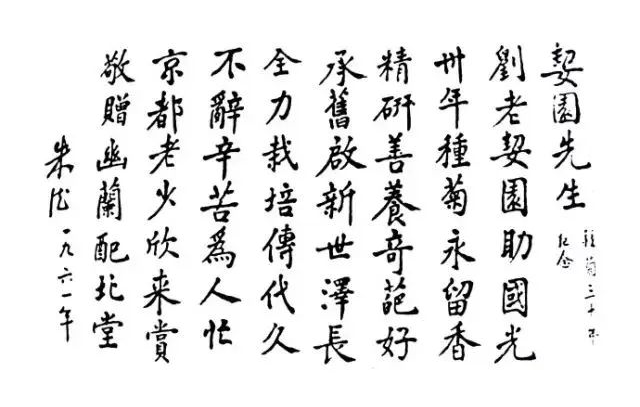 契園先生
種菊三十年
紀念
劉老契園助國光
卅年種菊永留香
精研善養奇葩好
承舊啟新世澤長
全力栽培傳代久
不辭辛苦為人忙
京都老少欣来賞
敬贈幽蘭配北堂
朱德 一九六一年